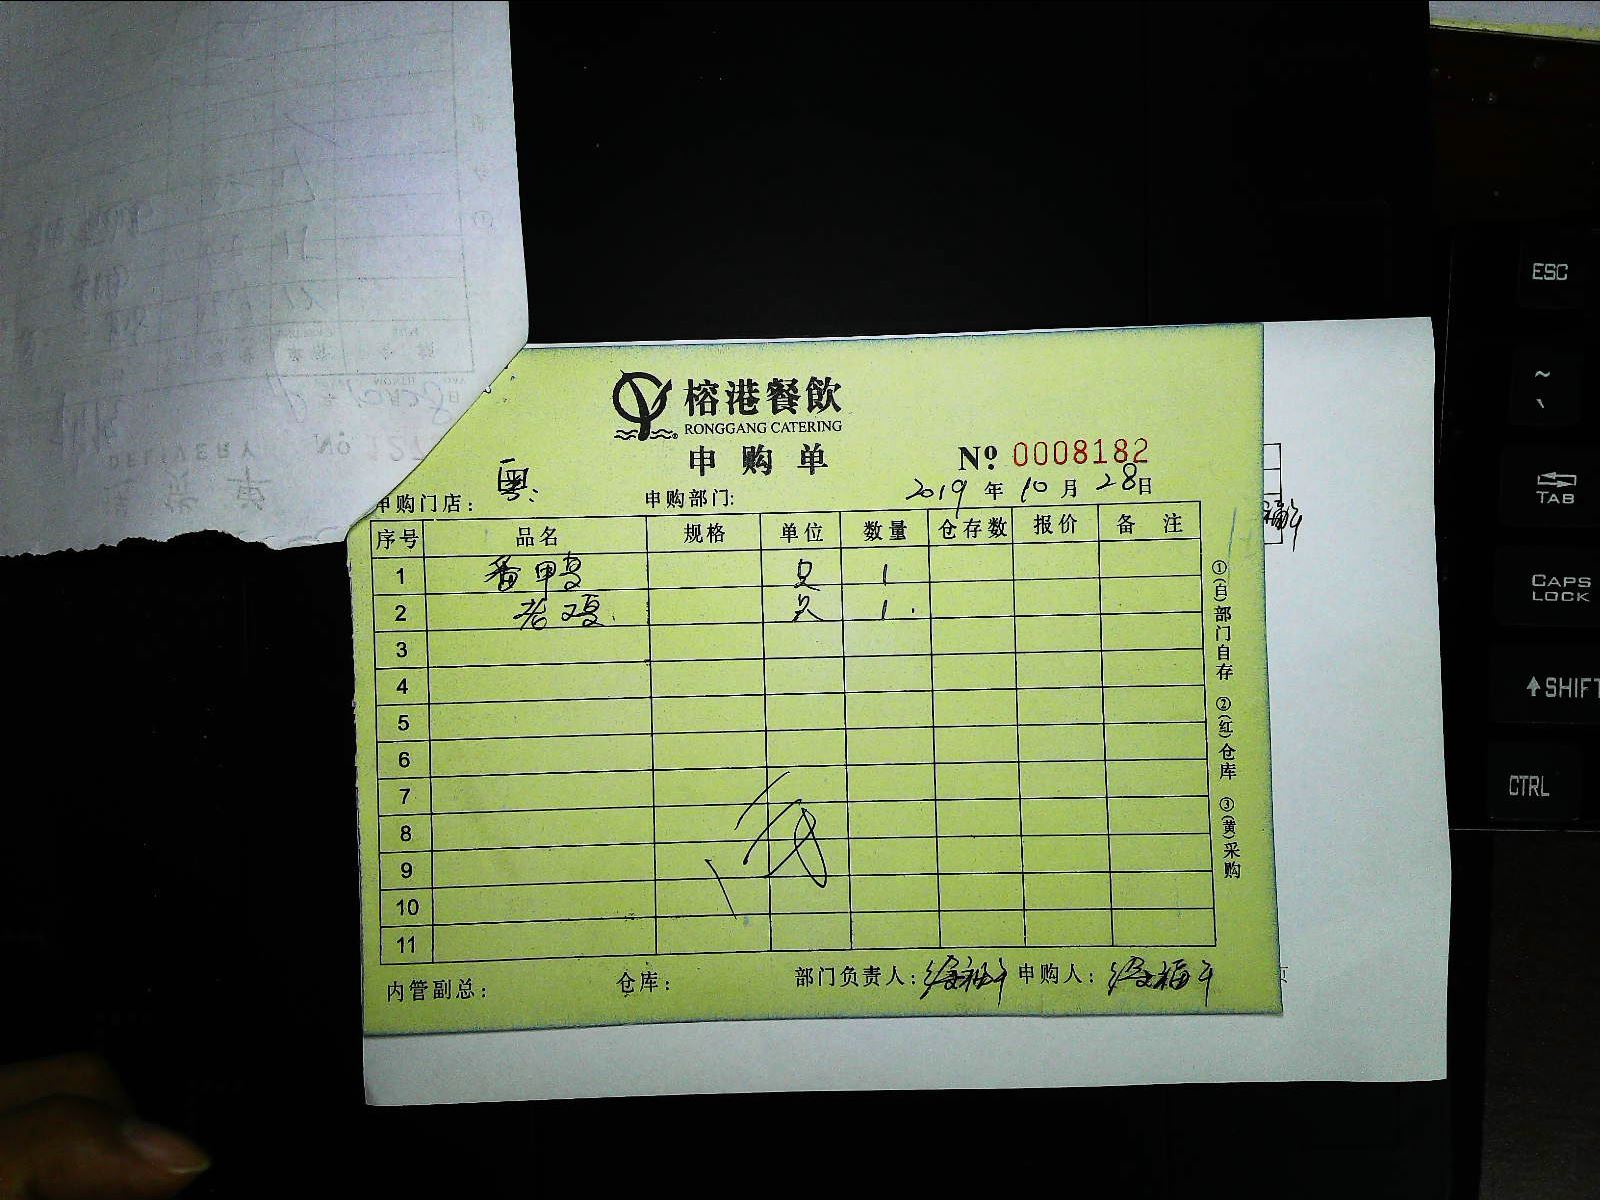 榕港餐飲
RONGGANG CATERING
申购单
№ 0008182
申购门店: 粤: 申购部门: 2019年10月28日
序号 品名 规格 单位 数量 仓存数 报价 备 注
1 番鸭 只 1
2 老鸡 只 1
3
4
5
6
7
8
9
10
11
内管副总: 仓库: 部门负责人: 申购人:
①(白)部门自存 ②(红)仓库 ③(黄)采购
DELIVERY № 127
ESC
~
TAB
CAPS LOCK
SHIFT
CTRL